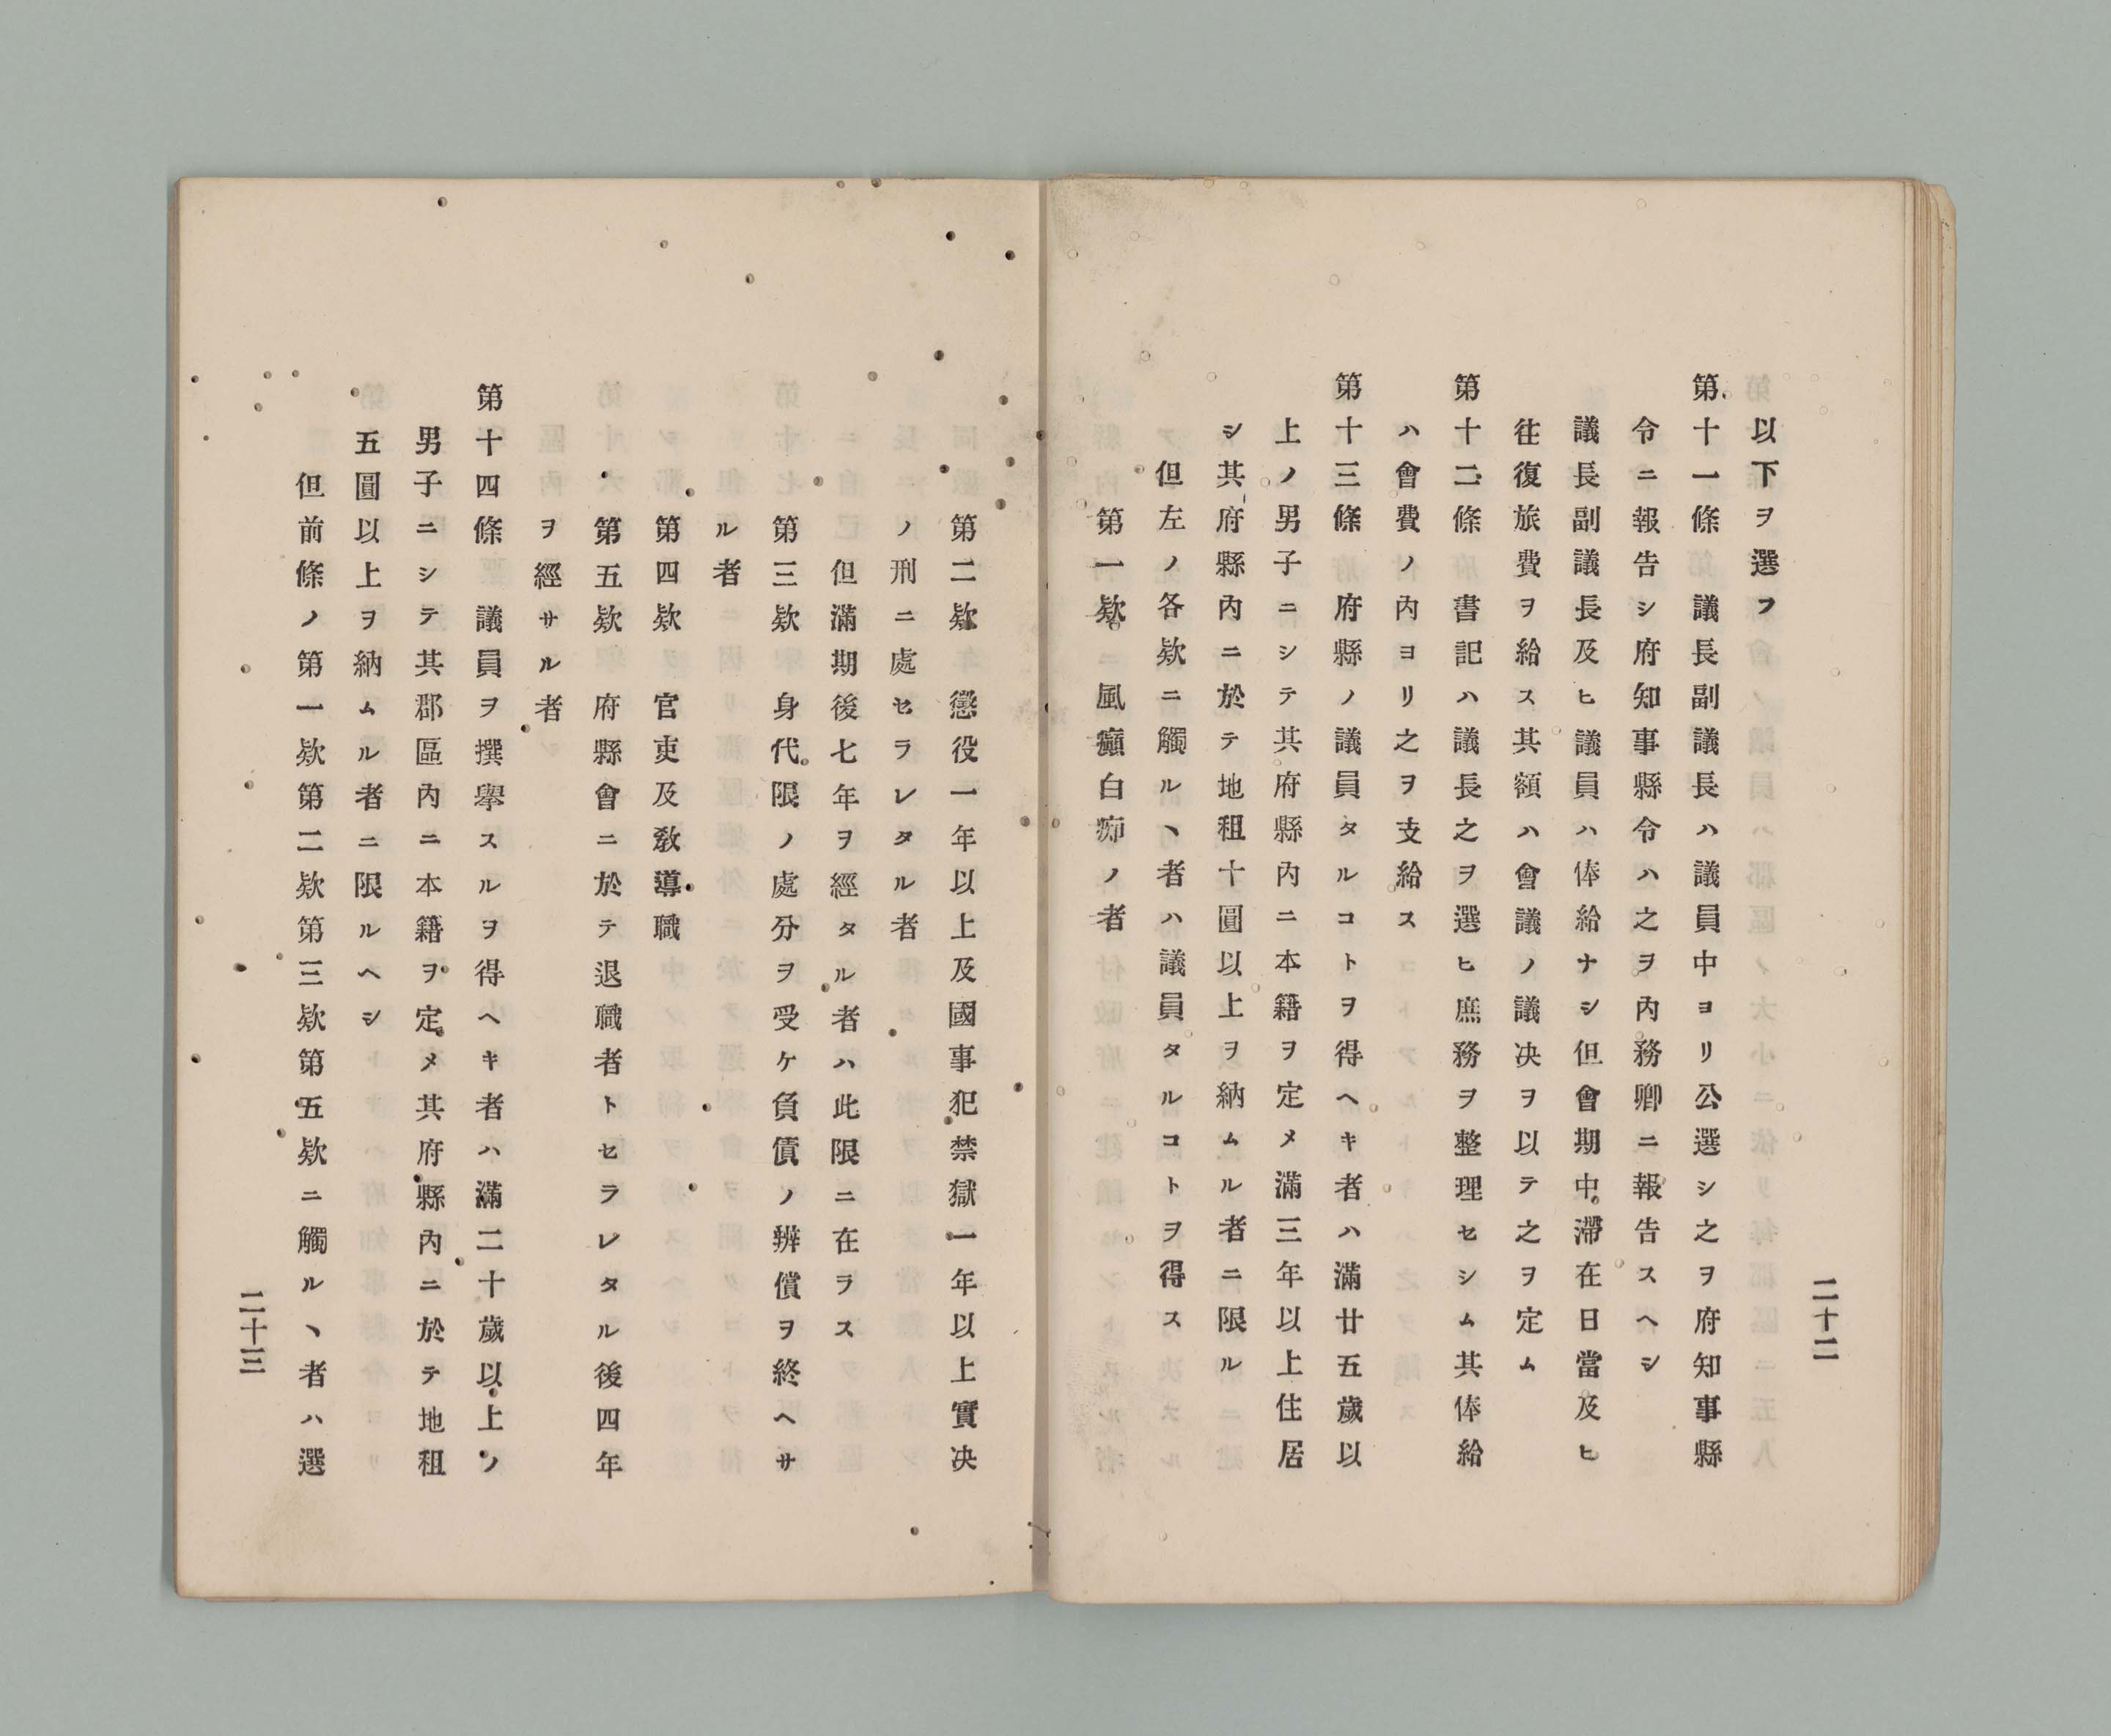 二十二
以下ヲ選フ
第十一條　議長副議長ハ議員中ヨリ公選シ之ヲ府知事縣
令ニ報告シ府知事縣令ハ之ヲ內務卿ニ報告スヘシ
議長副議長及ヒ議員ハ俸給ナシ但會期中滯在日當及ヒ
往復旅費ヲ給ス其額ハ會議ノ議决ヲ以テ之ヲ定ム
第十二條　書記ハ議長之ヲ選ヒ庶務ヲ整理セシム其俸給
ハ會費ノ內ヨリ之ヲ支給ス
第十三條　府縣ノ議員タルコトヲ得ヘキ者ハ滿廿五歲以
上ノ男子ニシテ其府縣內ニ本籍ヲ定メ滿三年以上住居
シ其府縣內ニ於テ地租十圓以上ヲ納ムル者ニ限ル
但左ノ各欵ニ觸ルヽ者ハ議員タルコトヲ得ス
第一欵　風癲白痴ノ者
第二欵　懲役一年以上及國事犯禁獄一年以上實决
ノ刑ニ處セラレタル者
但滿期後七年ヲ經タル者ハ此限ニ在ラス
第三欵　身代限ノ處分ヲ受ケ負債ノ辨償ヲ終ヘサ
ル者
第四欵　官吏及敎導職
第五欵　府縣會ニ於テ退職者トセラレタル後四年
ヲ經サル者
第十四條　議員ヲ撰擧スルヲ得ヘキ者ハ滿二十歲以上ノ
男子ニシテ其郡區內ニ本籍ヲ定メ其府縣內ニ於テ地租
五圓以上ヲ納ムル者ニ限ルヘシ
但前條ノ第一欵第二欵第三欵第五欵ニ觸ルヽ者ハ選
二十三